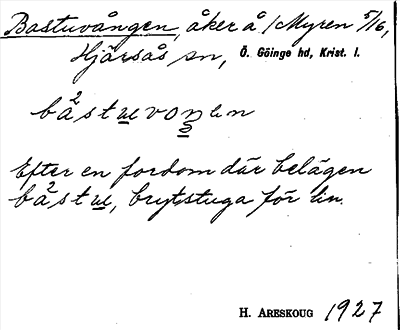 Bastuvången, åker å 1 Myren 5/16,
Hjärsås sn, Ö. Göinge hd, Krist. l.
Efter en fordom där belägen
brytstuga för lin.
H. ARESKOUG 1927